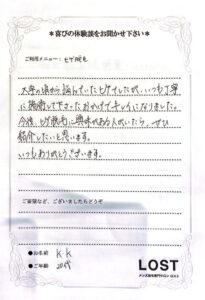 ＊喜びの体験談をお聞かせ下さい＊
ご利用メニュー：ヒゲ脱毛
大学の頃から悩んでいたヒゲでしたが、いつも丁寧
に施術して下さったおかげでキレイになりました。
今後、ヒゲ脱毛に興味がある人がいたら、ぜひ
紹介したいと思います。
いつもありがとうございます。
ご要望など、ございましたらどうぞ
●お名前 K K
●ご年齢 20代
LOST
メンズ脱毛専門サロン ロスト